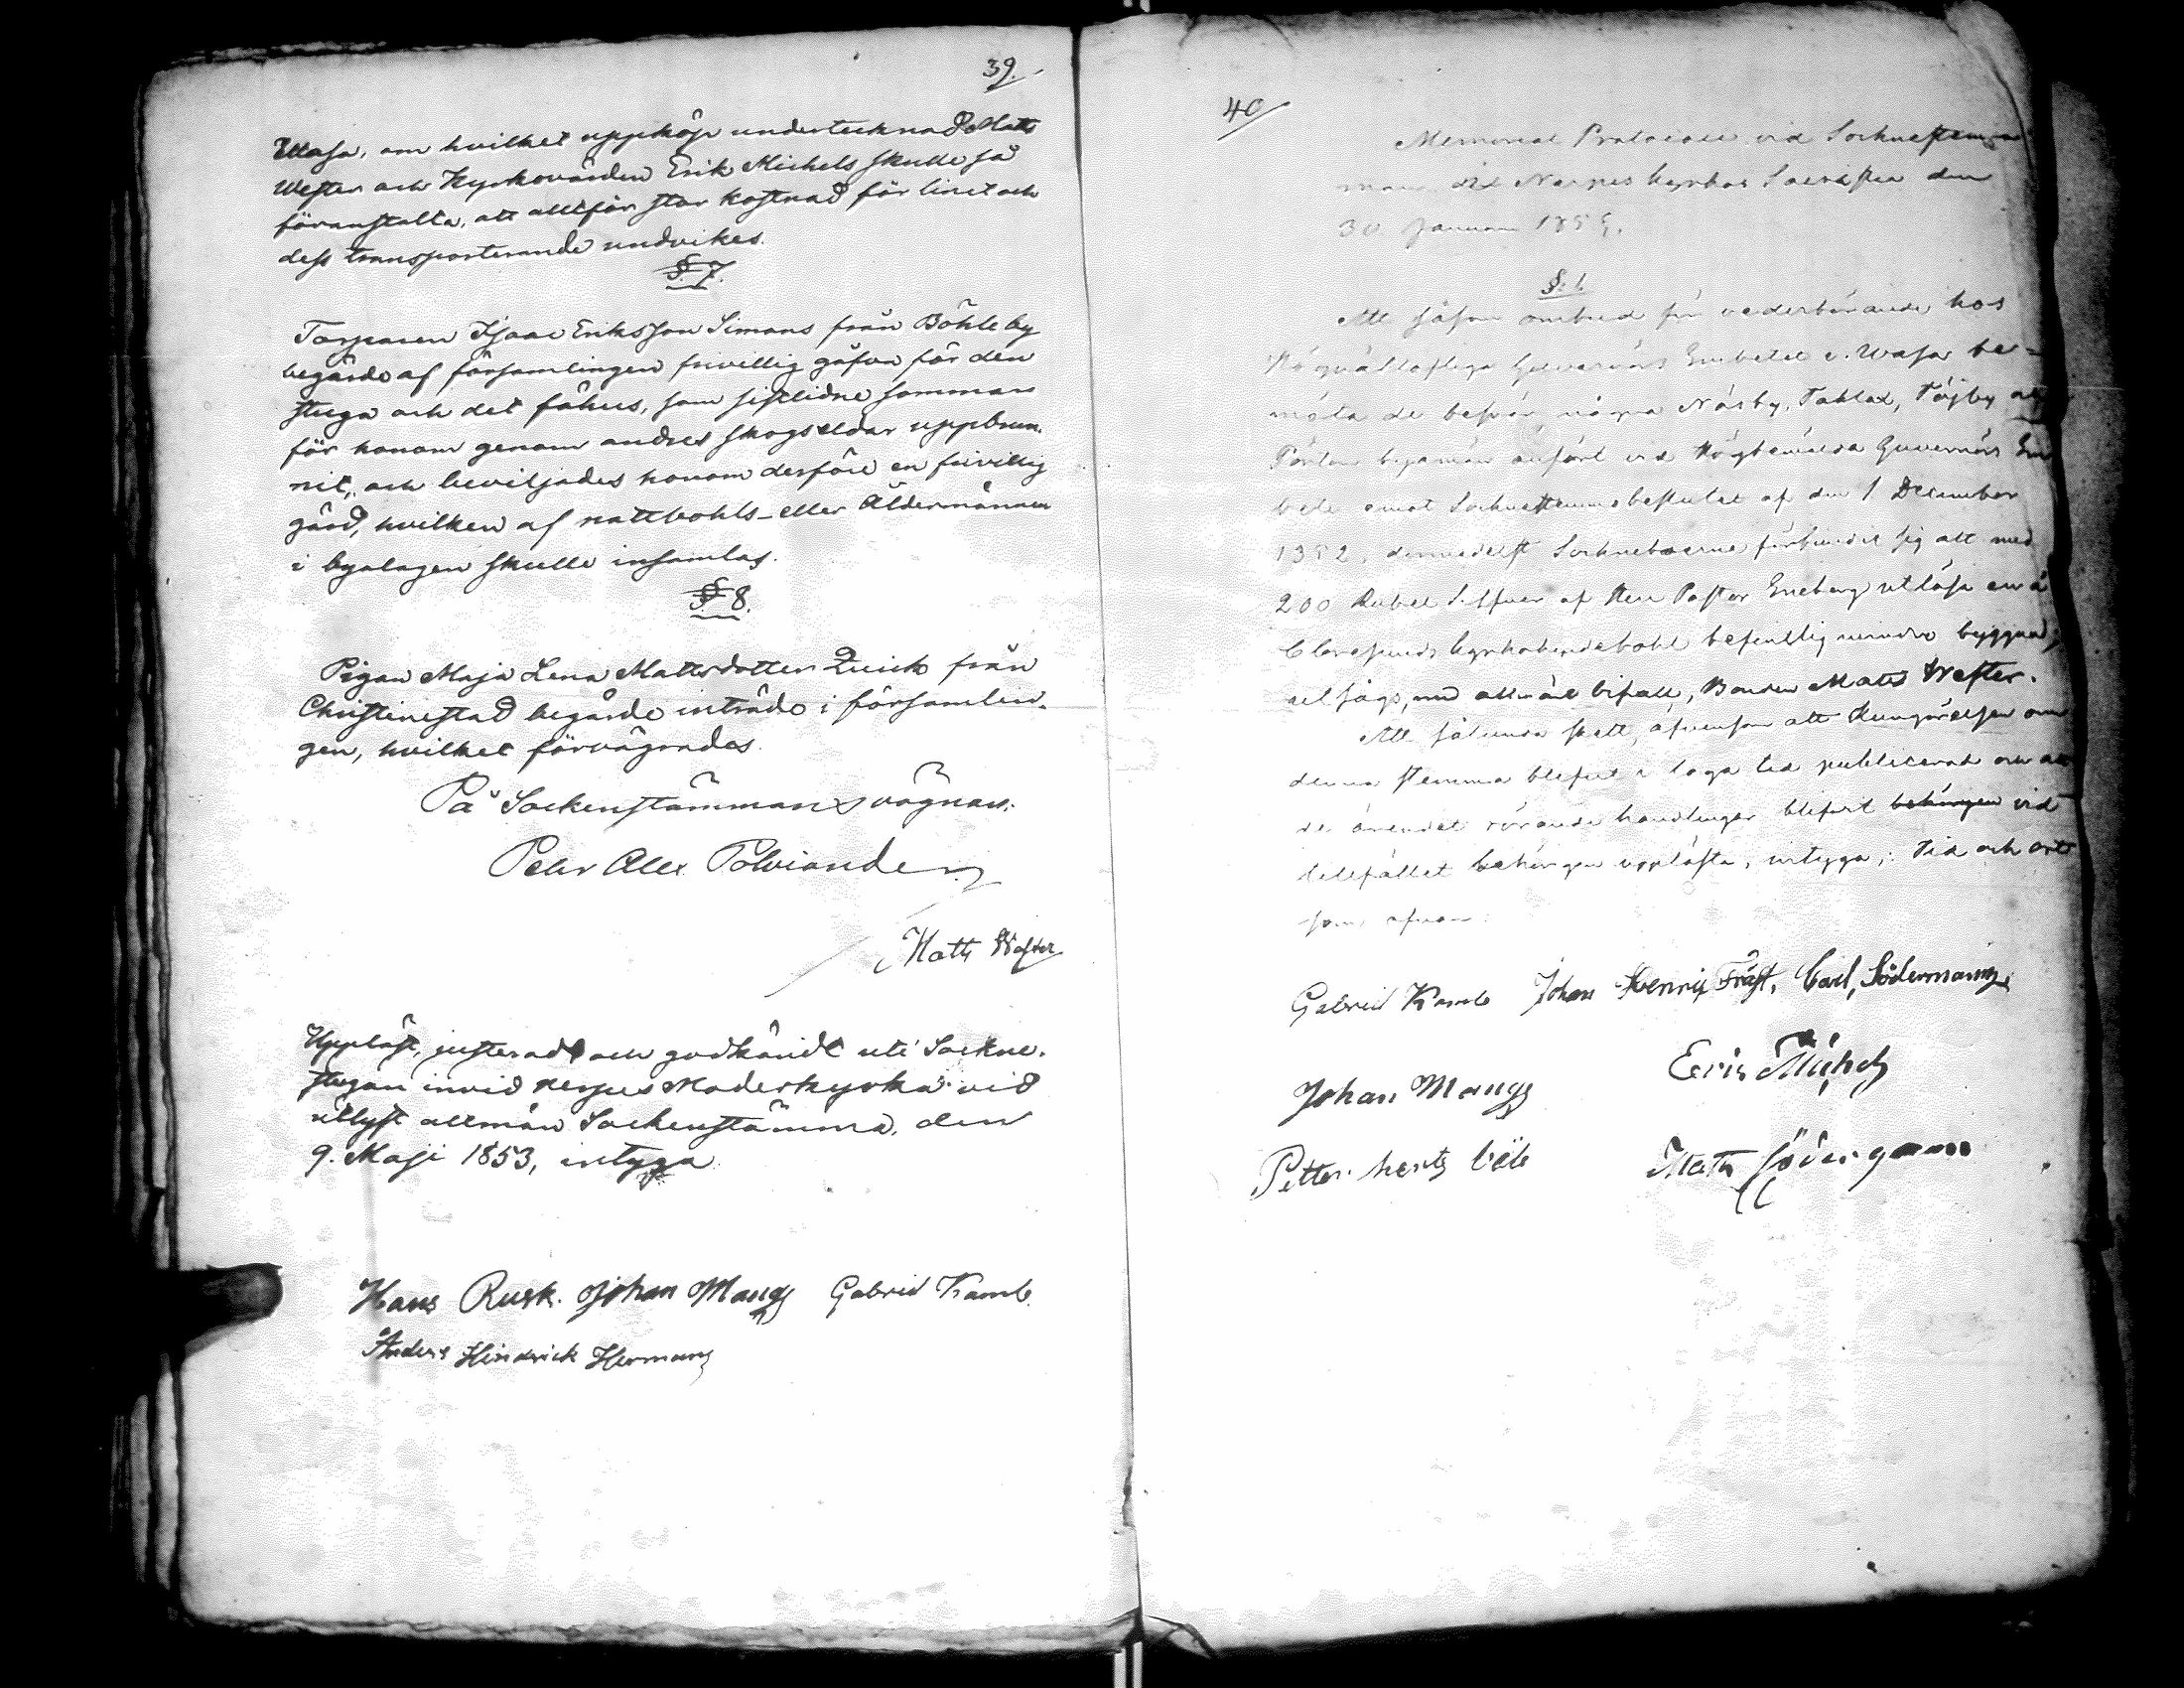 39.
Wasa, om hvilket uppköp undertecknad Matts
Wester och Kyrkovärden Erik Michels skulle så
föranstalta, att alltför stor kostnad för linet och
dess transporterande undvikes.
§ 7.
Torparen Isaac Eriksson Simons från Böhle by
begärde af församlingen frivillig gåfva för den
stuga och det fähus, som sistlidne sommar
för honom genom andres skogseldar uppbrun-
nit, och beviljades honom derföre en frivillig
gärd, hvilken af rattbohls- eller Åldermännen
i byalagen skulle insamlas.
§ 8.
Pigan Maja Lena Mattsdotter Quick från
Christinestad begärde inträde i församlin-
gen, hvilket förvägrades.
På Sockenstämmans vägnar:
Pehr Alex. Tolviander
Matts Wester
Uppläst, justeradt och godkändt uti Sockne-
stugan invid Nerpes Moderkyrka vid
utlyst allmän Sockenstämma, den
9. Maji 1853, intyga
Hans Rusk. Johan Mangs Gabriel Kamb.
Anders Hindrick Hermans
40
Memorial Protocoll vid Sockenstem-
man vid Nerpes kyrkas Sacristia den
30 Januari 1853.
§ 1.
Att såsom ombud för vederbörande hos
Högvällofliga Guvernörs Embetet i Wasa be-
möta de besvär några Näsby, Taklax, Töjby och
Pörtom byamän anfört vid Högbemälda Guvernörs Em
bete emot Sockenstemmobeslutet af den 1 December
1852, dermedelst Sockneboerne förbundit sig att med
200 Rubel Silfver af Herr Pastor Eneberg utlösa en å
Clovesunds kyrkoherdebohl befintlig mindre byggnad,
utsågs, med allmän bifall, Bonden Matts Wester.
Att sålunda skett, äfvensom att Kungörelsen om
denna stemma blifvit i laga tid publicerad och att
de ärendet rörande handlingar blifvit behörigen vid
tillfället behörigen upplästa, intyga; Tid och ort
som ofvan.
Gabriel Kamb Johan Henrik Fräst, Carl Södermans
Johan Mangs Eric Michels
Petter herts böle Matts Södergran